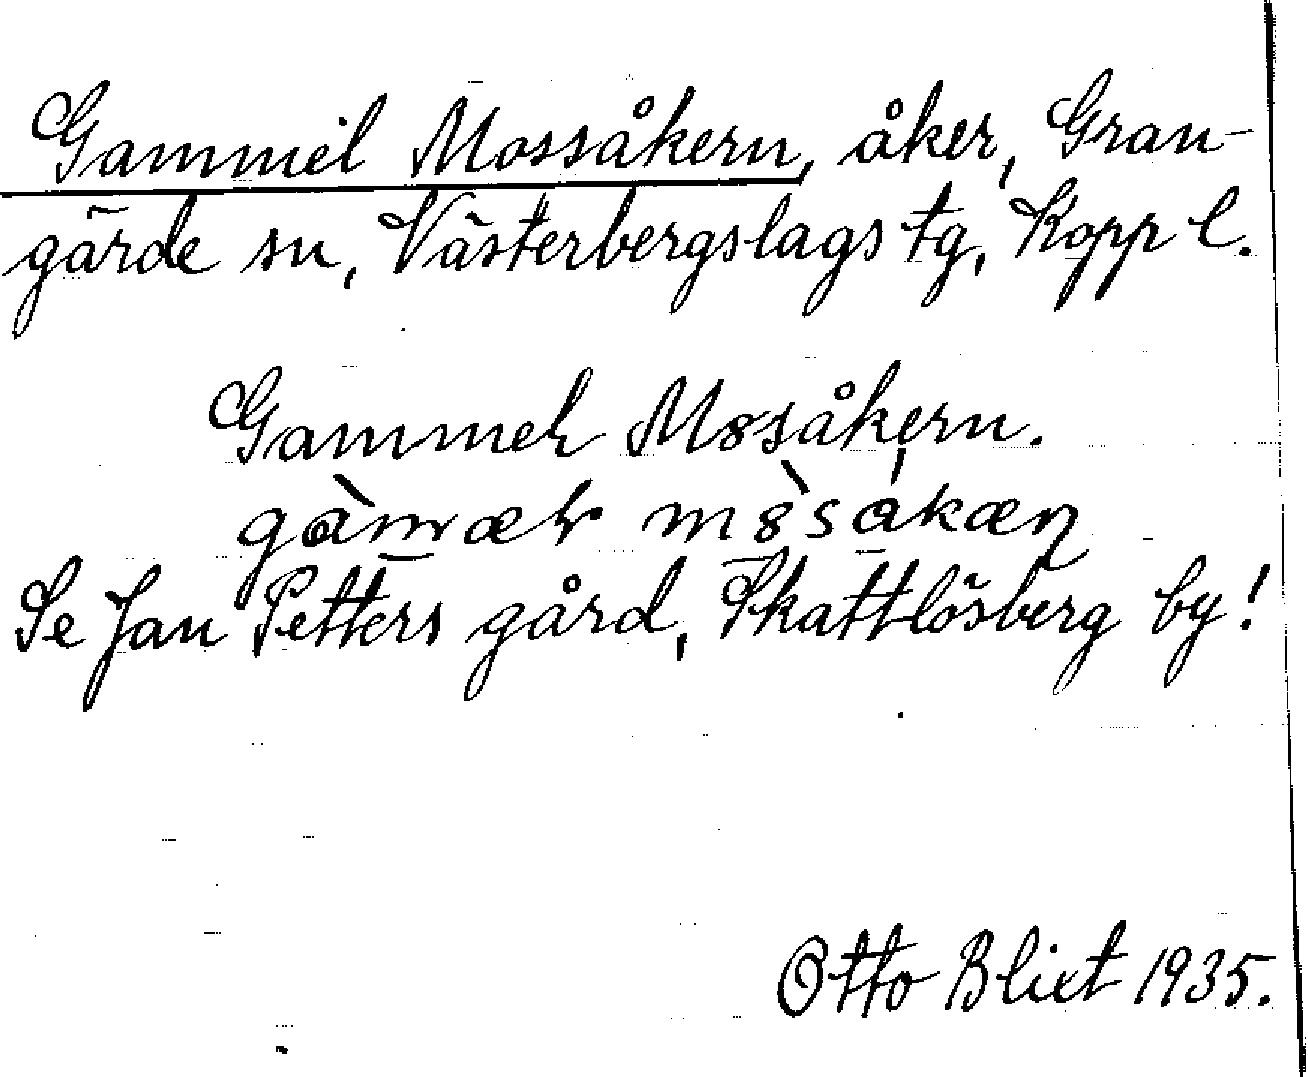 Gammel Mossåkern, åker, Gran-
gärde sn, Västerbergslags tg, Kopp l.
Gammeł M8såkern.
gàmæł m8̀såkæn
Se Jan Petters gård, Skattlösberg by!
Otto Blixt 1935.